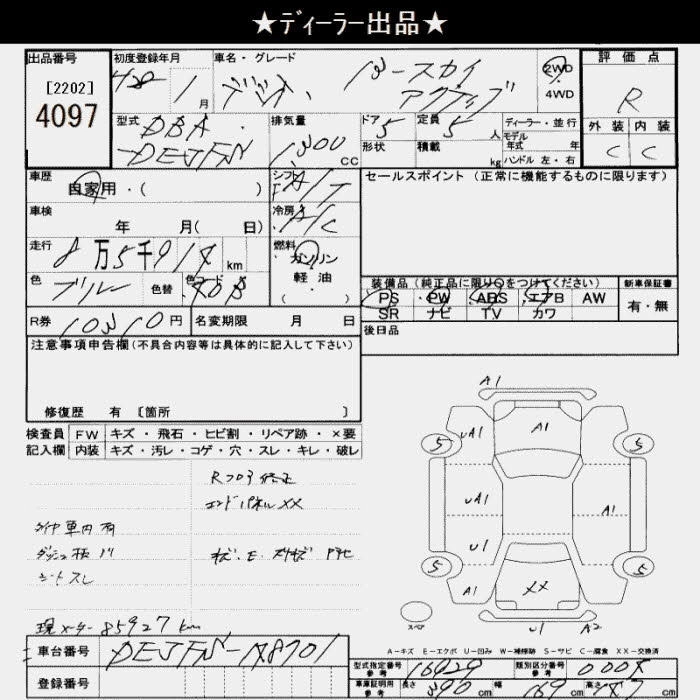 ★ディーラー出品★
出品番号 初度登録年月 車名・グレード 評価点
[2202] 1月 2WD
4097 ・4WD R
型式 DBA 排気量 ドア 5 定員 5人 ディーラー・並行 外装 内装
DEJFS 1300cc 形状 積載 kg モデル年式 年 ハンドル 左・右 C C
車歴 シフト セールスポイント(正常に機能するものに限ります)
自家用・( ) F A/T
車検 冷房
年 月( 日) A/C
走行 燃料
8万5千91 km ガソリン
色 色替 色コード 軽油 装備品(純正品に限り○をつけてください) 新車保証書
ブルー ・( ) PS PW ABS エアB AW 有・無
SR ナビ TV カワ
R券 円 名変期限 月 日 後日品
注意事項申告欄(不具合内容等は具体的に記入して下さい)
修復歴 有 [箇所 ]
検査員 FW キズ・飛石・ヒビ割・リペア跡・×要
記入欄 内装 キズ・汚レ・コゲ・穴・スレ・キレ・破レ
Rフロア修正
エンドパネルXX
タイヤ車内有
シートスレ
現メーター85927km
A1
5 UA1 A1 5
UA1 A1
U1
5 A1 XX 5
スペア U1 A2
A-キズ E-エクボ U-凹み W-補修跡 S-サビ C-腐食 XX-交換済
車台番号 型式指定番号 参考 類別区分番号 参考
登録番号 車庫証明用 参考 長さ 390cm 幅 169cm 高さ cm